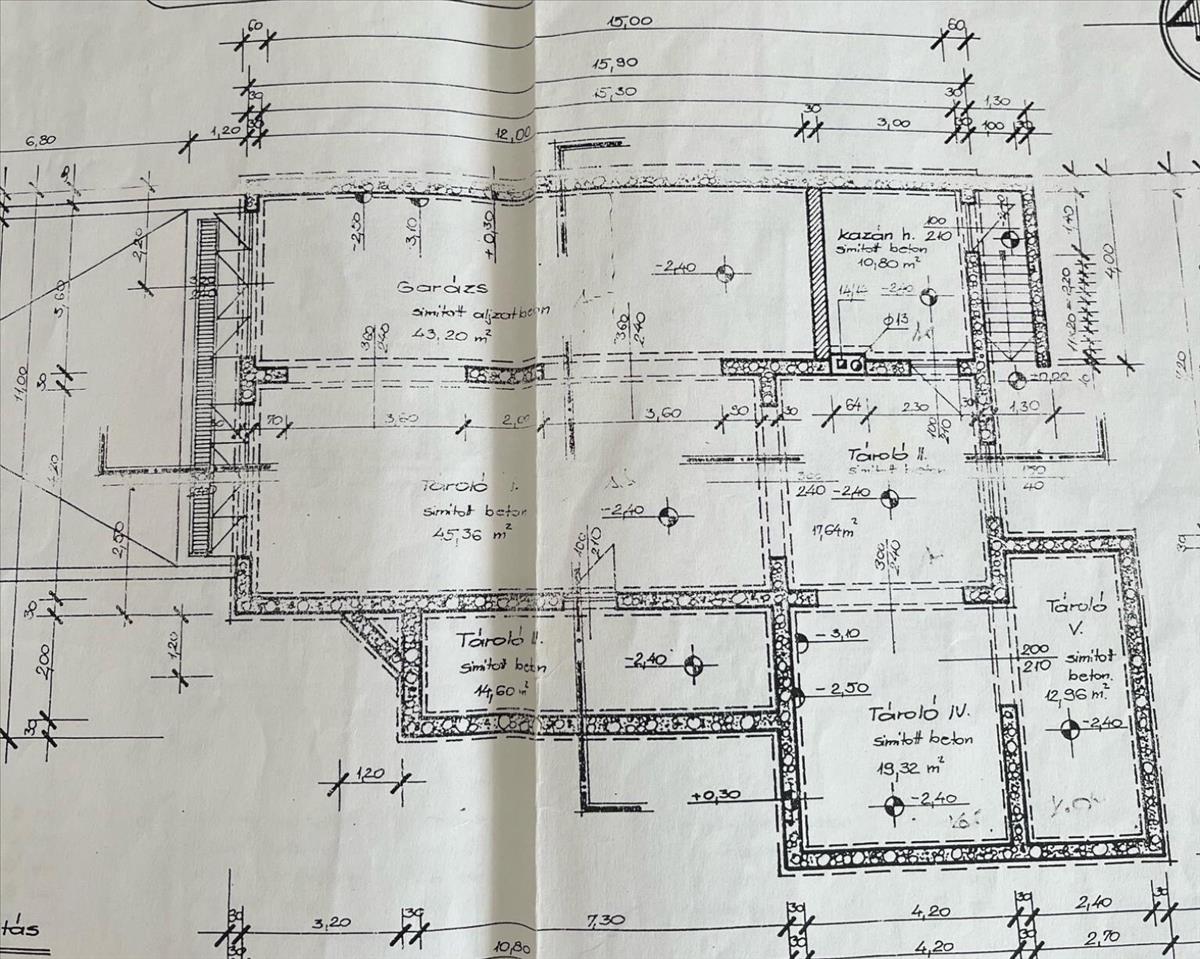 60
15,00
60
15,90
30
15,30
30
1,30
6,80
1,20
12,00
30
3,00
100
-2,50
3,10
+0,30
2,20
Garázs
simított aljzatbeton
43,20 m²
-2,40
360
240
360
240
kazán h.
simított beton
10,80 m²
100
210
14/14
-2,40
φ13
1,40
4,00
3,60
11,00
30
4,20
70
3,60
2,00
3,60
90
30
64
2,30
30
1,30
100
210
Tároló I.
simított beton
45,36 m²
-2,40
Tároló II.
simított beton
17,64 m²
300
240
-2,40
300
240
40
100
210
2,50
1,20
30
2,00
30
Tároló II.
simított beton
14,60 m²
-2,40
-3,10
-2,50
+0,30
Tároló IV.
simított beton
19,32 m²
-2,40
200
210
Tároló
V.
simított
beton.
12,96 m²
-2,40
1,20
30
tás
30
3,20
30
7,30
30
4,20
30
2,40
30
30
10,80
30
4,20
30
2,70